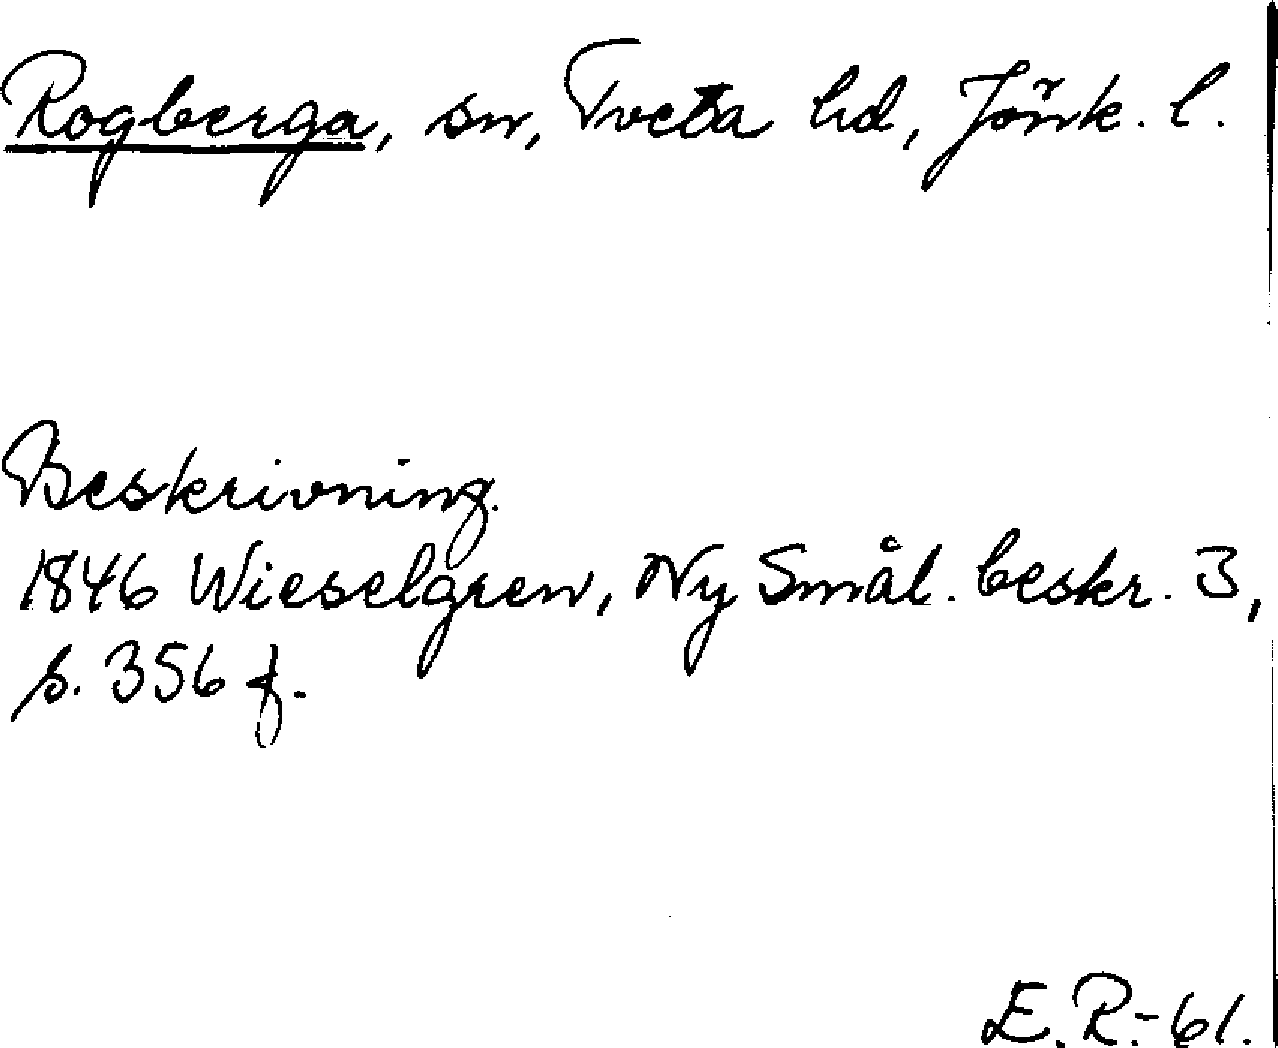 Rogberga, sn, Tveta hd, Jönk. l.
Beskrivning.
1846 Wieselgren, Ny Smål. beskr. 3,
s. 356 f.
E.R.-61.